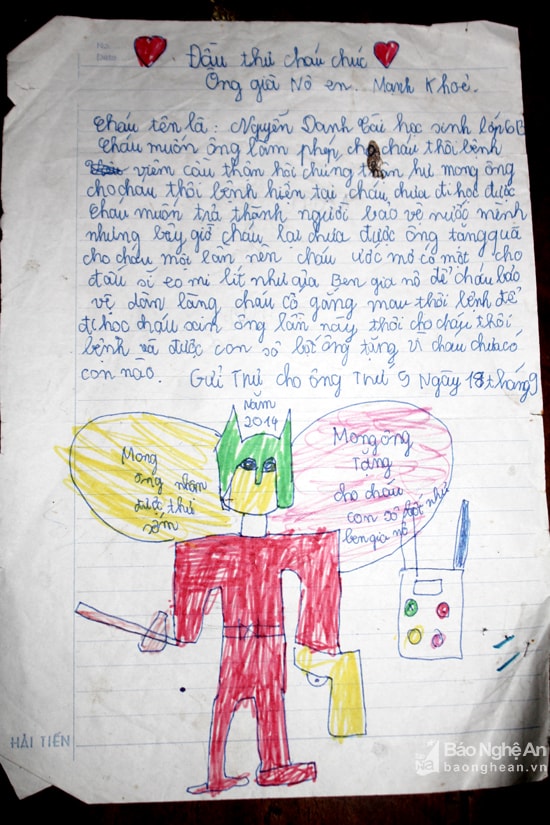 No.
Date
Đầu thư cháu chúc
Ông già Nô en. Mạnh Khoẻ.
Cháu tên là: Nguyễn Danh Tài học sinh lớp 6B
Cháu muốn ông làm phép, cho cháu thôi bệnh
viêm cầu thận hội chứng thận hư mong ông
cho cháu thôi bệnh hiện tại, cháu, chưa đi học được
Cháu muốn trả thành người bao vê nước mình
nhưng bây giờ cháu lai chưa được ông tăng quà
cho cháu một lần nên cháu ước mơ có một cho
đấu sĩ eo mi lít như của Ben gia nô để cháu bảo
vệ dân làng cháu cố gang mau thôi bệnh để
đi học cháu xin ông lần này thôi cho cháu thôi
bệnh và được con sô bốt ông tặng vì chau chưa có
con nào. Gửi Thư cho ông Thứ 5 Ngày 18 tháng 9
năm
2014
Mong
ông nhận
được thư
sớm
Mong ông
Tặng
cho cháu
con sô bốt như
ben gia nô
HẢI TIẾN
Báo Nghệ An
baonghean.vn